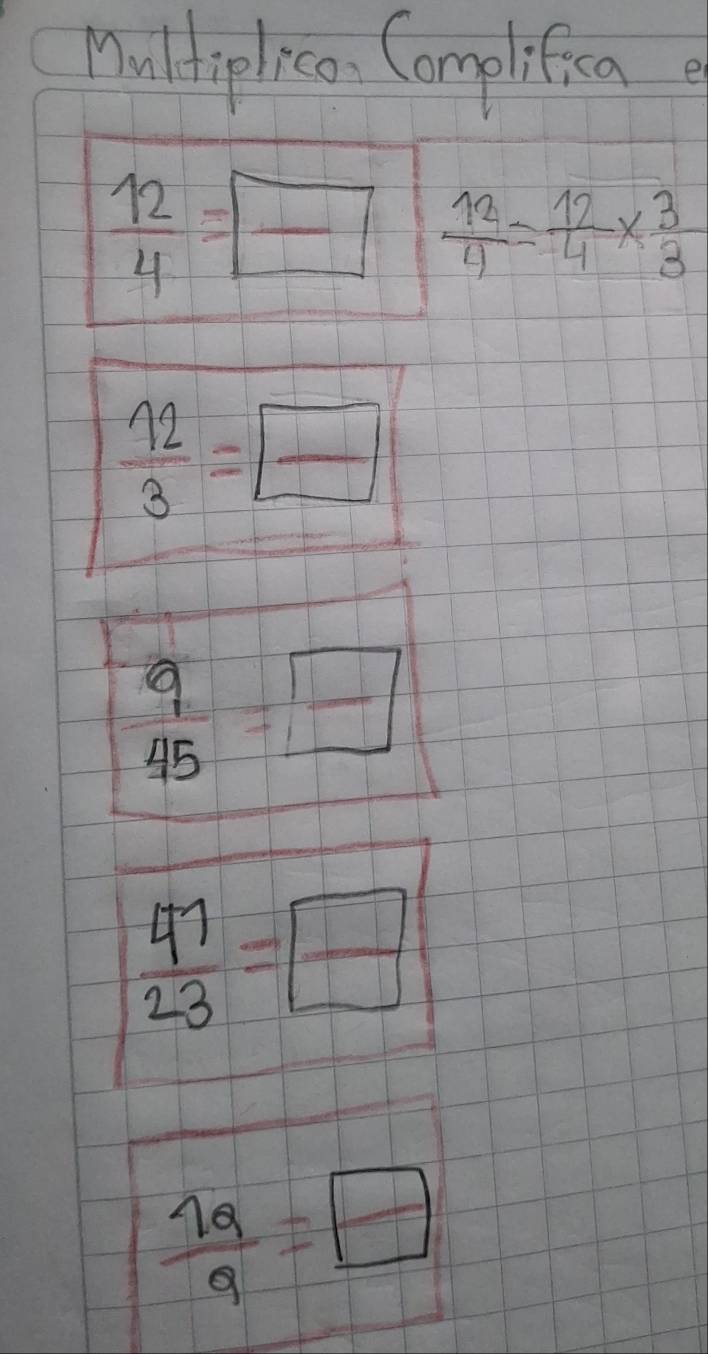 Multiplico. Complifica e
12/4 = — 12/4 = 12/4 × 3/3
12/3 = —
9/45 = —
41/23 = —
19/9 = —